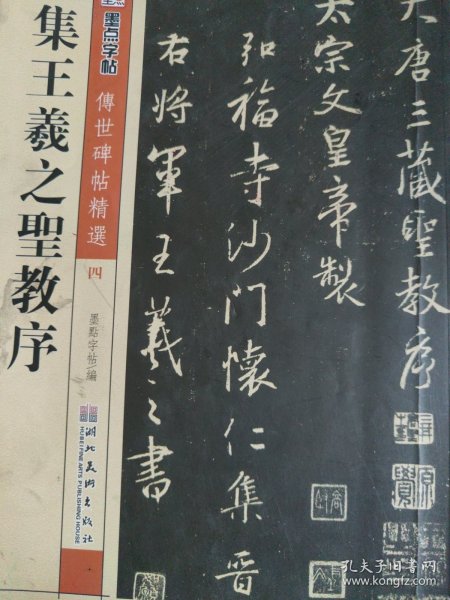 集王羲之聖教序
墨点字帖
傳世碑帖精選
四
墨點字帖/編
湖北美術出版社
HUBEI FINE ARTS PUBLISHING HOUSE
大唐三藏聖教序
太宗文皇帝製
弘福寺沙門懷仁集晋
右將軍王羲之書
孔夫子旧书网
www.kongfz.com